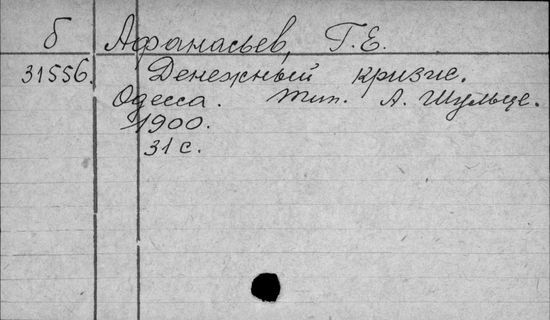 б Афанасьев, Г. Е.
31556. Денежный кризис.
Одесса. Тип. А. Шульце.
1900.
31 с.